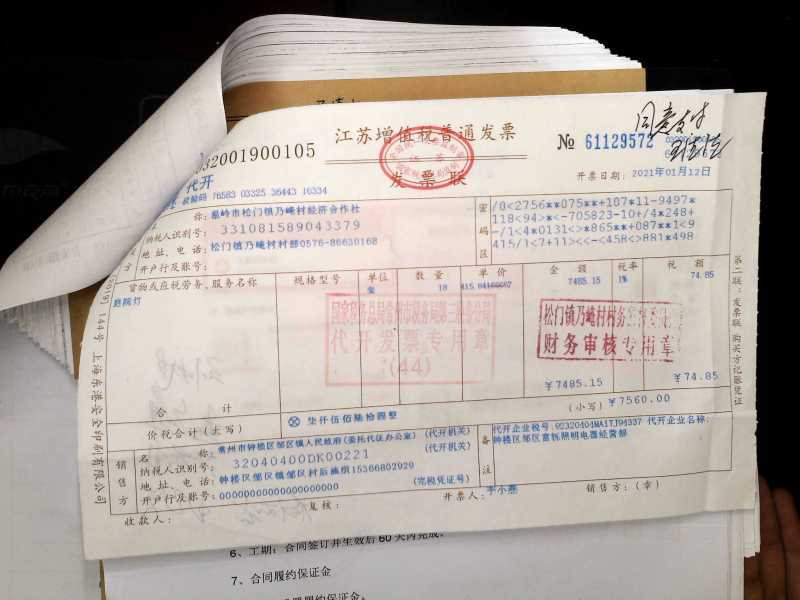 江苏增值税普通发票
发票联
032001900105
№ 61129572
同意支付
代开
校验码 76583 03325 36443 16334
开票日期: 2021年01月12日
称: 温岭市松门镇乃崦村经济合作社
纳税人识别号: 331081589043379
地址、电话: 松门镇乃崦村村部0576-86630168
开户行及账号:
密码区
/0<2756**075**+107*11-9497*
118<94>*<-705823-10+/4*248+
-/1<4*0131<>*865**+087**1<9
415/1<7+11<<-<458<>881*498
货物或应税劳务、服务名称 规格型号 单位 数量 单价 金额 税率 税额
庭院灯 套 18 415.84166667 7485.15 1% 74.85
国家税务总局常州市税务局第三税务分局
代开发票专用章
(44)
财务审核专用章
合计 ￥7485.15 ￥74.85
价税合计(大写) ⊗ 柒仟伍佰陆拾圆整 (小写) ￥7560.00
销售方
名称: 常州市钟楼区邹区镇人民政府(委托代征办公室) (代开机关)
纳税人识别号: 32040400DK00221 (代开机关)
地址、电话: 钟楼区邹区镇邹区村后施组15366802929
开户行及账号: 00000000000000000000 (完税凭证号)
备注
代开企业税号: 92320404MA1TJ94337 代开企业名称:
钟楼区邹区富钰照明电器经营部
收款人: 复核: 开票人: 李小燕 销售方: (章)
第二联: 发票联 购买方记账凭证
[2019] 144号 上海东港安全印刷有限公司
6、工期: 合同签订并生效后 60 天内完成。
7、合同履约保证金